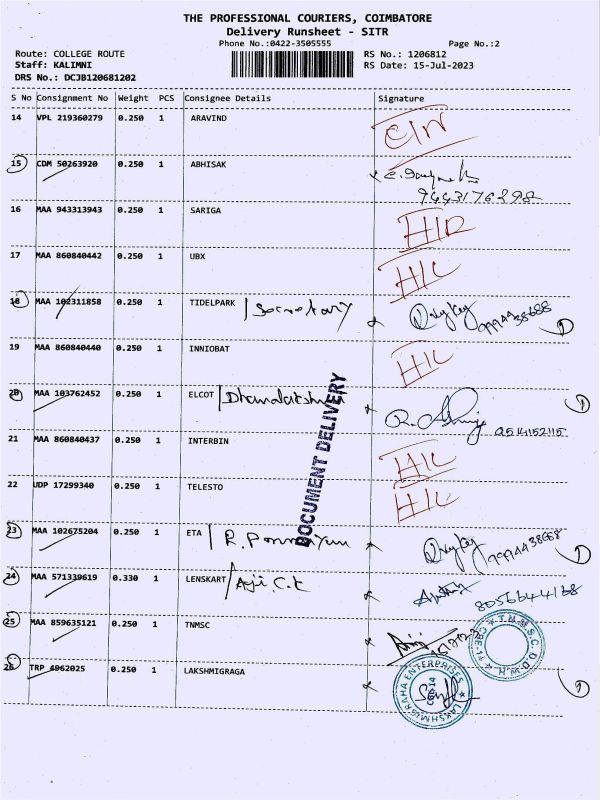 THE PROFESSIONAL COURIERS, COIMBATORE
Delivery Runsheet - SITR
Phone No.:0422-3505555 Page No.:2
Route: COLLEGE ROUTE RS No.: 1206812
Staff: KALIMNI RS Date: 15-Jul-2023
DRS No.: DCJB120681202
S No Consignment No Weight PCS Consignee Details Signature
14 VPL 219360279 0.250 1 ARAVIND
15 CDM 50263920 0.250 1 ABHISAK
9443176298
16 MAA 943313943 0.250 1 SARIGA
17 MAA 860840442 0.250 1 UBX H/L
18 MAA 102311858 0.250 1 TIDELPARK / Secretary 9994438688
19 MAA 860840440 0.250 1 INNIOBAT H/L
20 MAA 103762452 0.250 1 ELCOT
DOCUMENT DELIVERY
21 MAA 860840437 0.250 1 INTERBIN H/L
22 UDP 17299340 0.250 1 TELESTO H/L
23 MAA 102675204 0.250 1 ETA
24 MAA 571339619 0.330 1 LENSKART / Aji C.K
8056644168
25 MAA 859635121 0.250 1 TNMSC
26 TRP 4962025 0.250 1 LAKSHMIGRAGA
LAKSHMIGRAHA ENTERPRISES
CBE-14